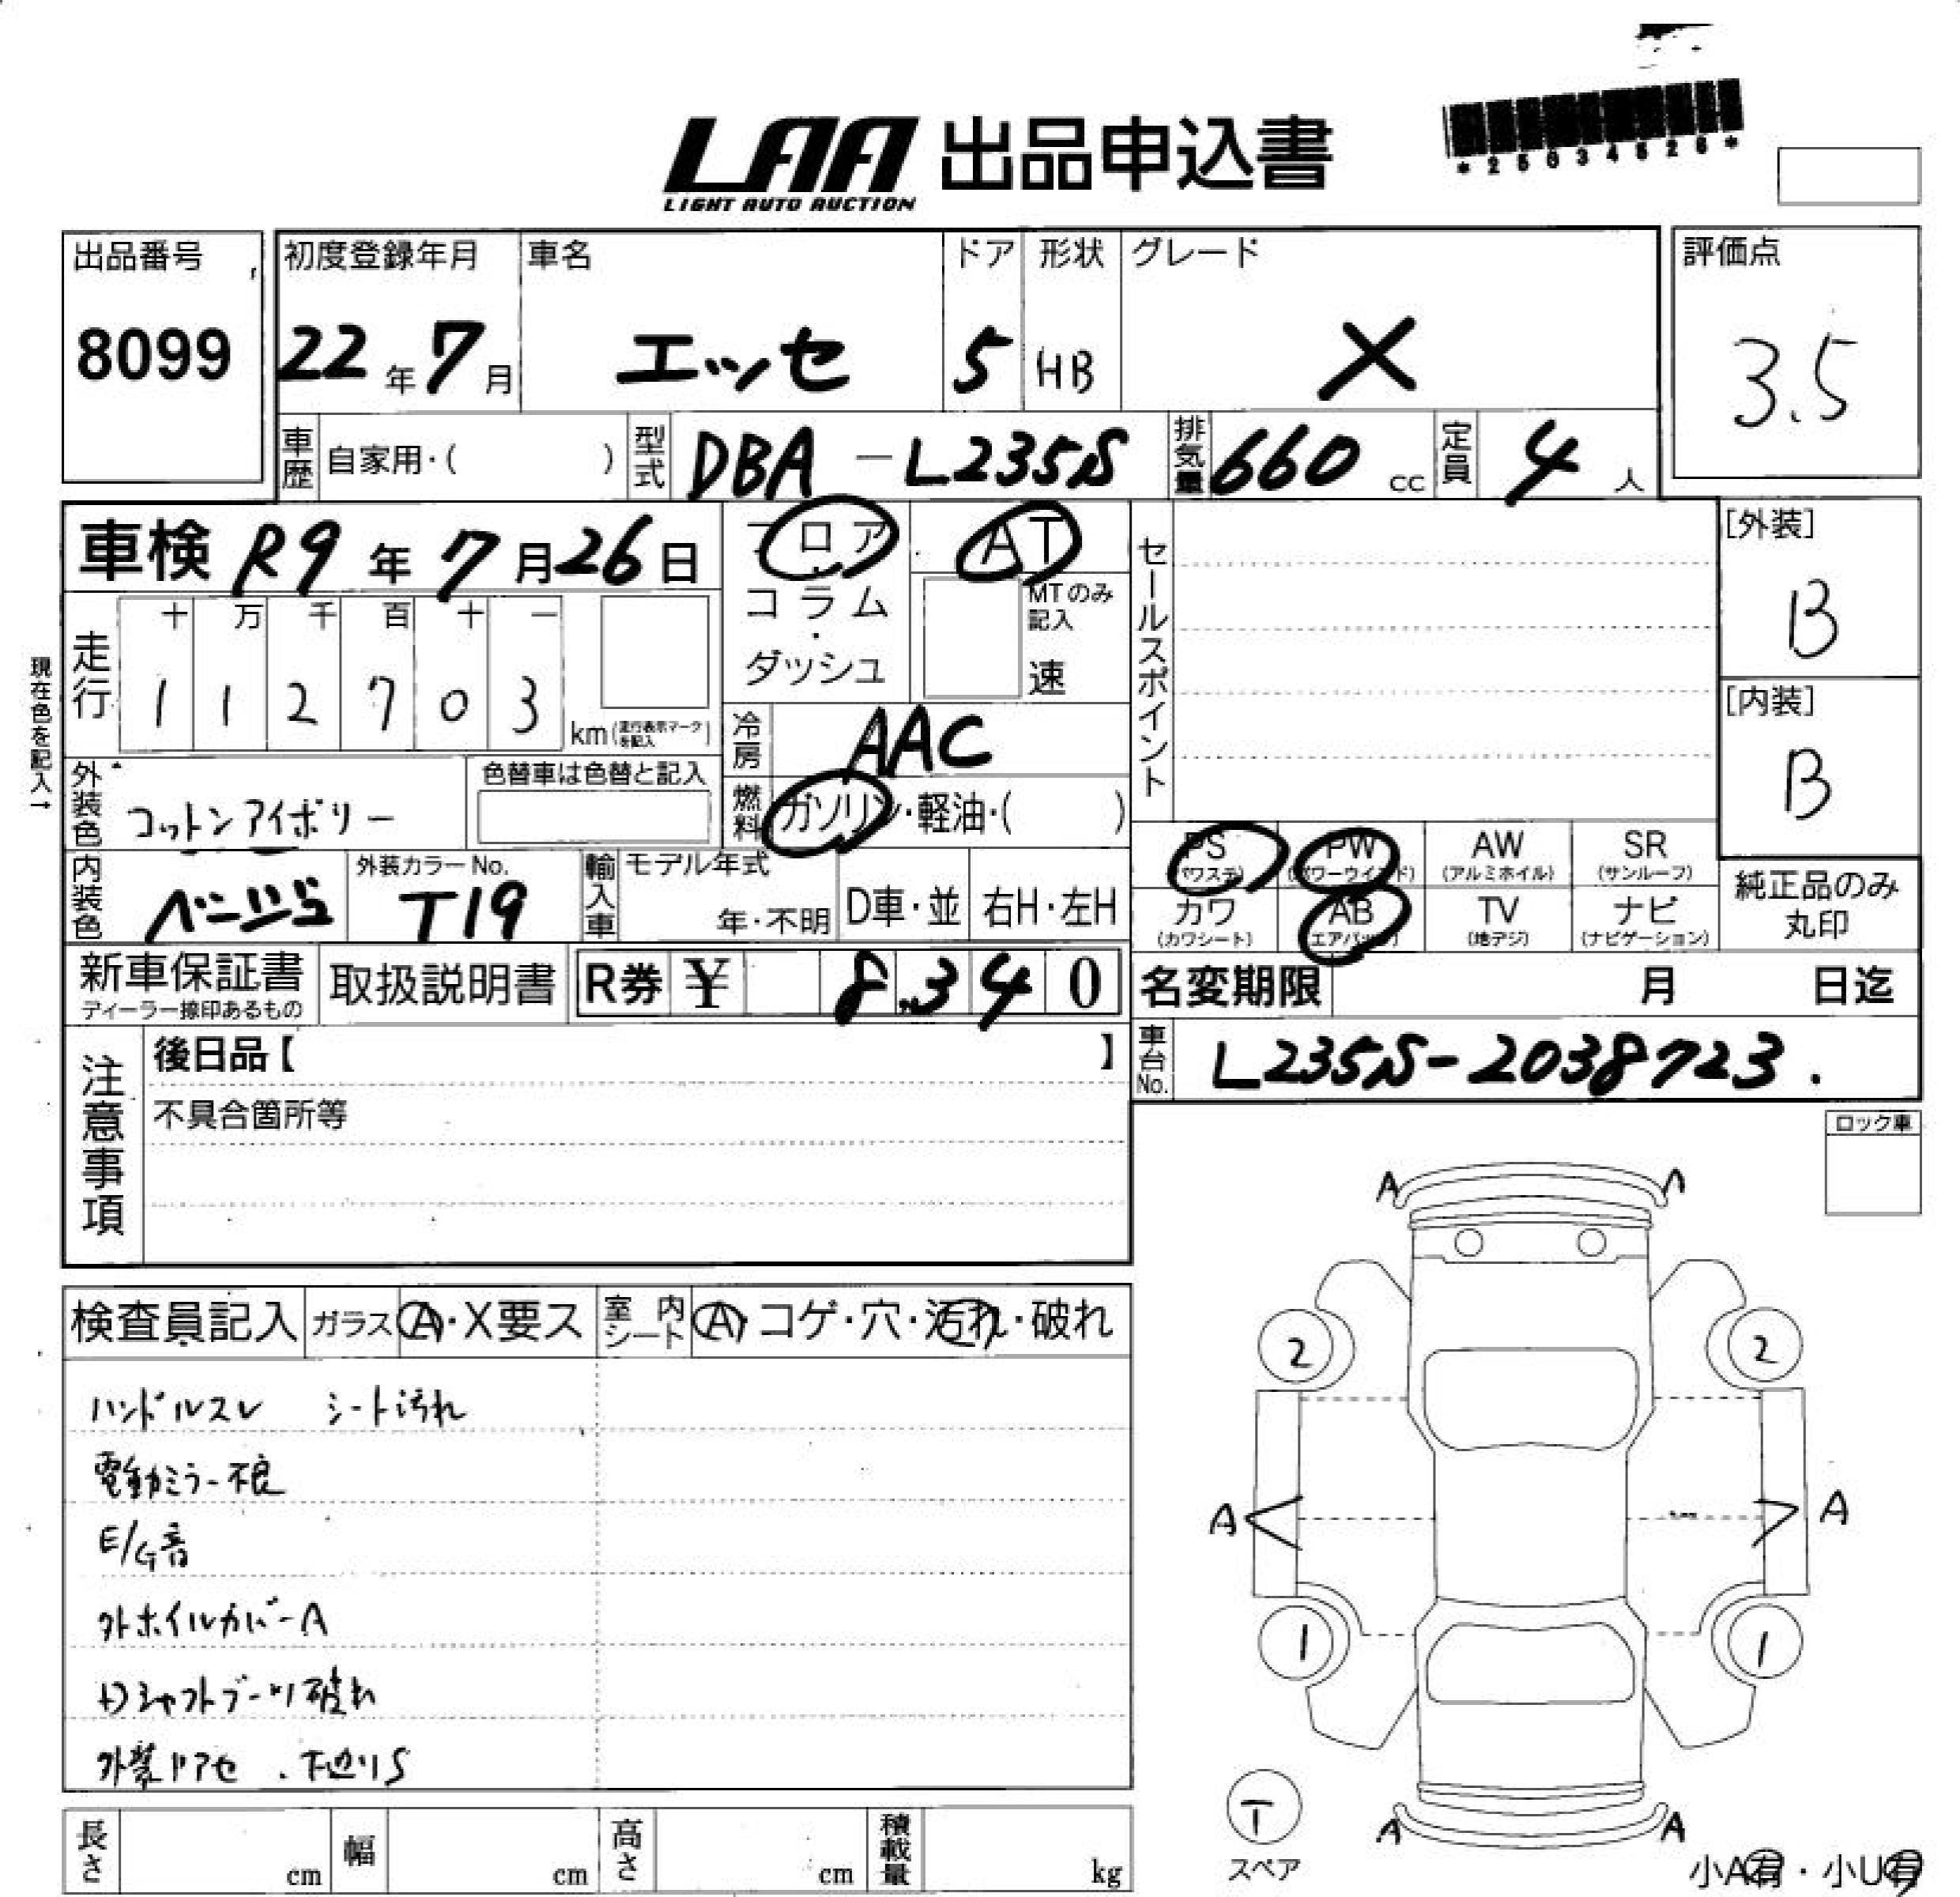 LAA 出品申込書
LIGHT AUTO AUCTION
出品番号
8099
初度登録年月
22年7月
車名
エッセ
ドア
5
形状
HB
グレード
X
評価点
3.5
車歴 自家用・( )
型式 DBA-L235S
排気量 660 cc
定員 4 人
車検 R9年7月26日
フロア・コラム・ダッシュ
AT
MTのみ記入
速
セールスポイント
[外装]
B
[内装]
B
現在色を記入→
走行
十 万 千 百 十 一
1 1 2 7 0 3
km(走行表示マークを記入)
冷房 AAC
外装色 コットンアイボリー
色替車は色替と記入
燃料 ガソリン・軽油・( )
内装色 ベージュ
外装カラーNo.
T19
輸入車
モデル年式
年・不明
D車・並
右H・左H
PS (パワステ)
PW (パワーウインド)
AW (アルミホイル)
SR (サンルーフ)
カワ (カワシート)
AB (エアバッグ)
TV (地デジ)
ナビ (ナビゲーション)
純正品のみ
丸印
新車保証書
ディーラー捺印あるもの
取扱説明書
R券 ¥ 8,340
名変期限 月 日迄
注意事項
後日品【 】
不具合箇所等
車台No. L235S-2038723.
ロック車
検査員記入
ガラス A・X要ス
室内シート A・コゲ・穴・汚れ・破れ
ハンドルスレ シート汚れ
電動ミラー不良
E/G音
外ホイルカバーA
Dシャフトブーツ破れ
外装ドアセ . 下廻りS
A A
2 2
A A
1 1
T
スペア
A A
小A有・小U有
長さ cm
幅 cm
高さ cm
積載量 kg